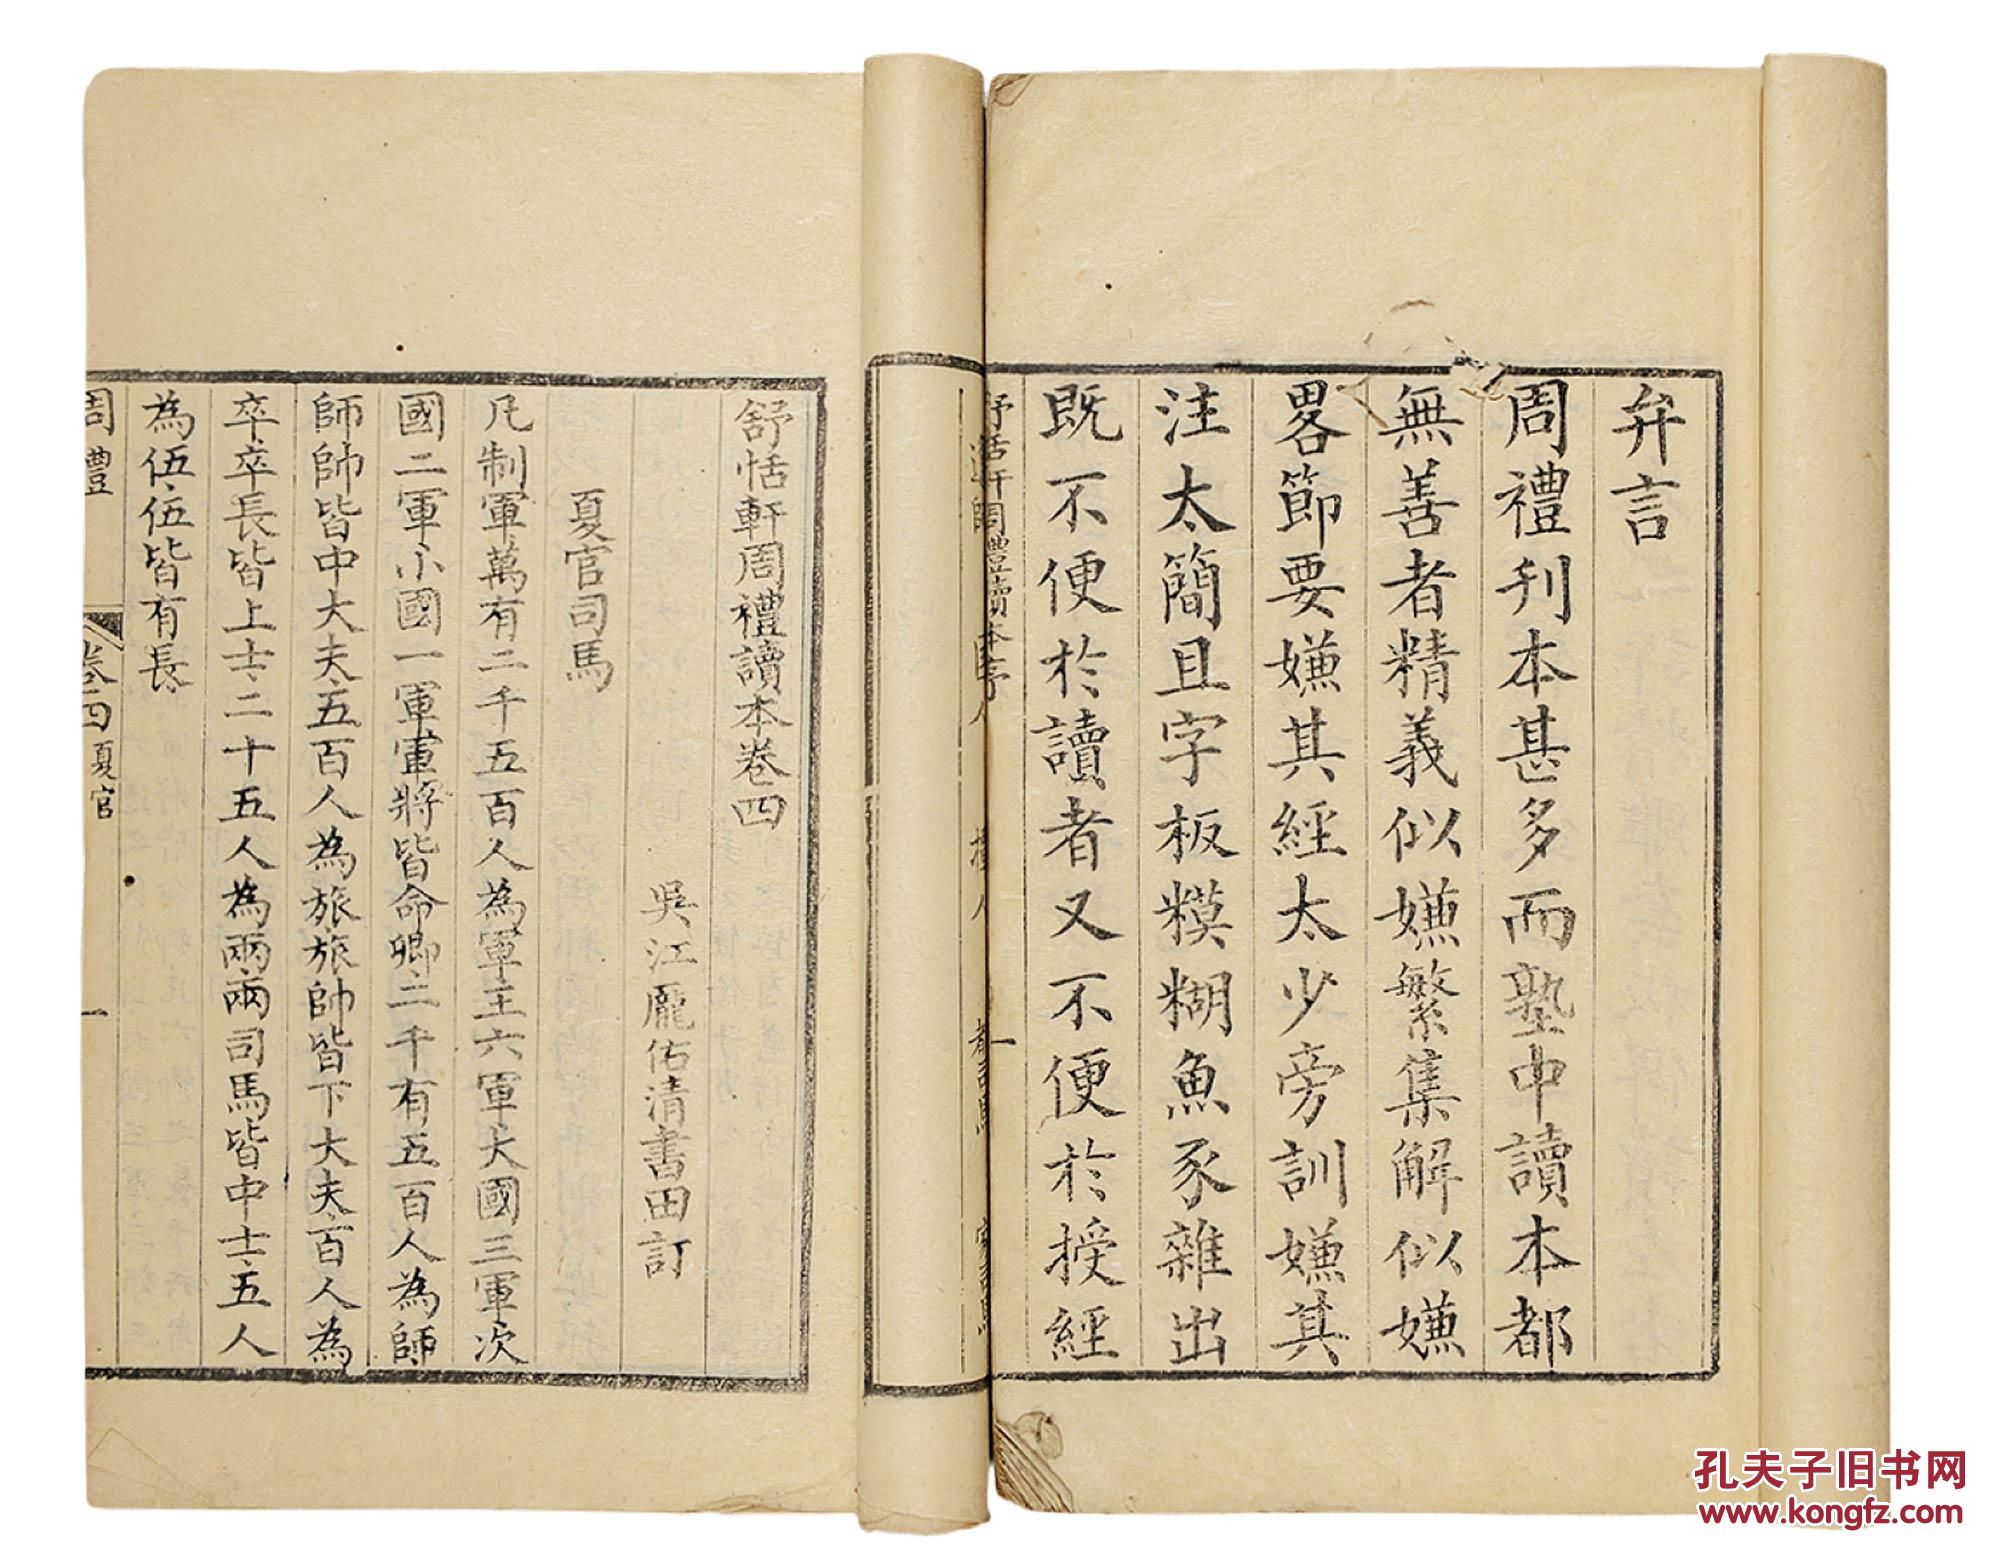 弁言
周禮刋本甚多而塾中讀本都
無善者精義似嫌繁集解似嫌
畧節要嫌其經太少旁訓嫌其
注太簡且字板糢糊魚豕雜出
既不便於讀者又不便於授經
舒恬軒周禮讀本序
一
舒恬軒周禮讀本卷四
吳江龐佑清書田訂
夏官司馬
凡制軍萬有二千五百人為軍王六軍大國三軍次
國二軍小國一軍軍將皆命卿二千有五百人為師
師帥皆中大夫五百人為旅旅帥皆下大夫百人為
卒卒長皆上士二十五人為兩兩司馬皆中士五人
為伍伍皆有長
周禮
卷四夏官
一
孔夫子旧书网
www.kongfz.com